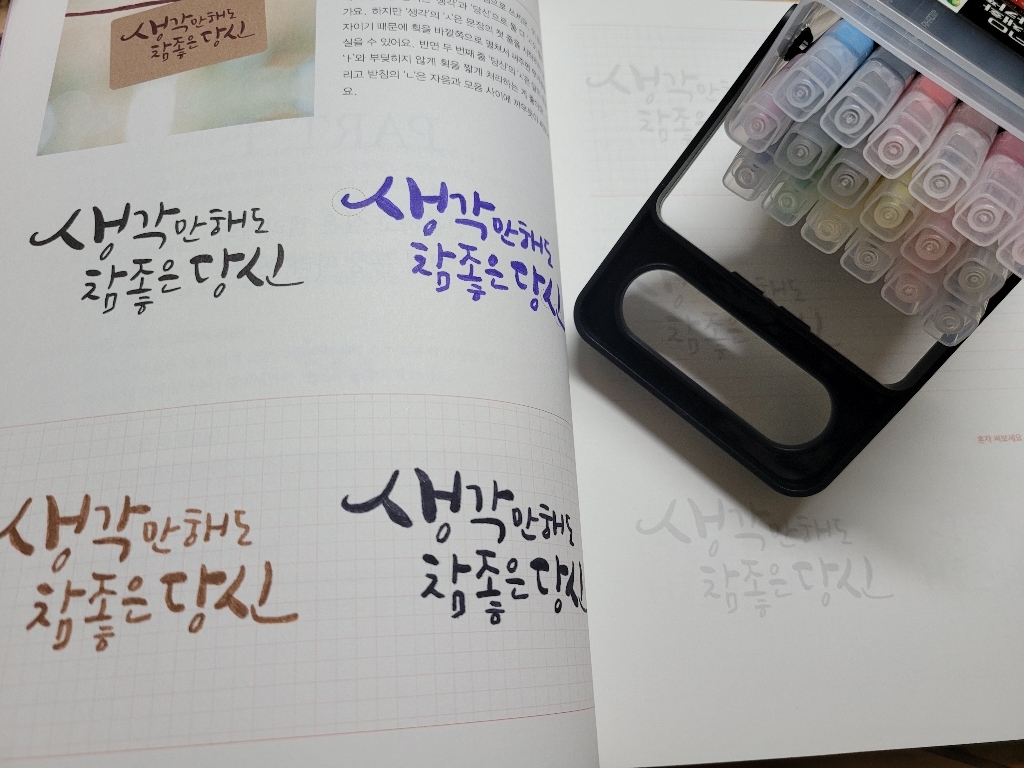 생각만해도
참좋은당신
가요. 하지만 '생각'의 'ㅅ'은 문장의 첫
자이기 때문에 획을 바깥쪽으로 펼쳐서
실을 수 있어요. 반면 두 번째 줄 '당신'의 'ㅅ'은
'ㅏ'와 부딪히지 않게 획을 짧게 처리하는 게
리고 받침의 'ㄴ'은 자음과 모음 사이에
요.
생각만해도
참좋은당신
생각만해도
참좋은당신
생각만해도
참좋은당신
생각만해도
참좋은당신
생각만
참좋은
생각만해도
참좋은당신
혼자 써보세요
생각만해도
참좋은당신